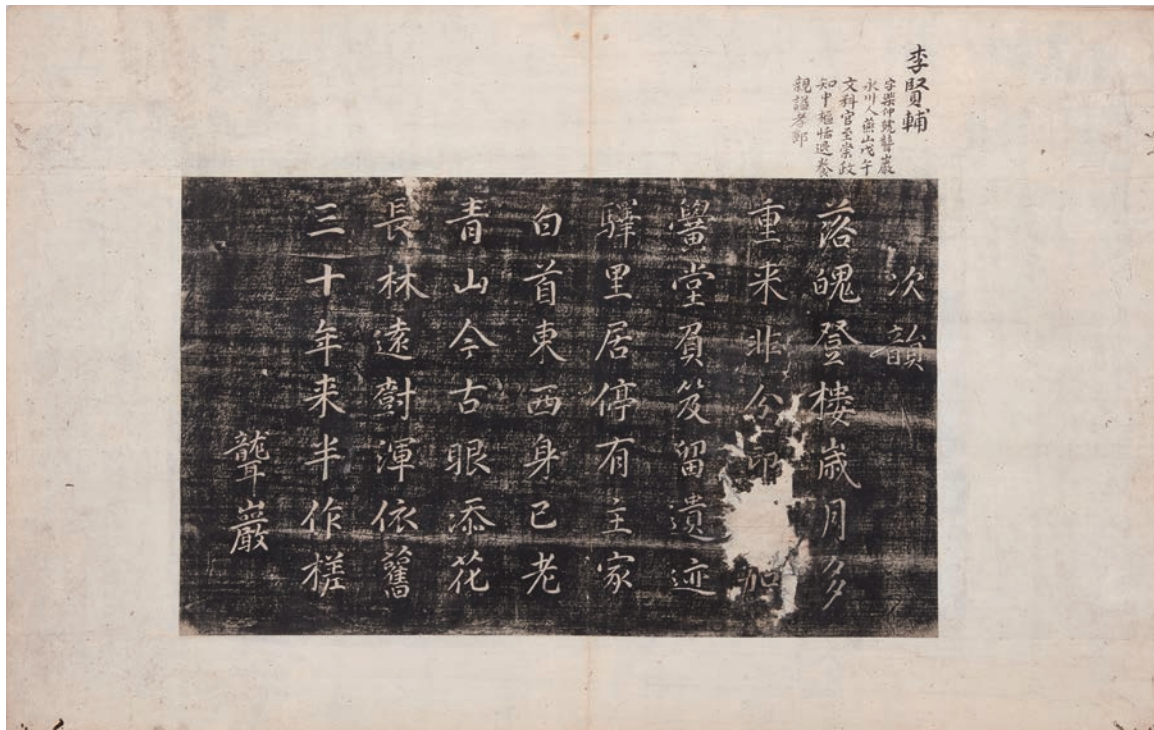 李賢輔
字棐仲號聾巖
永川人燕山戊午
文科官至崇政
知中樞恬退養
親諡孝節
次韻
落魄登樓歲月多
重来非分
黌堂負笈留遺迹
驛里居停有主家
白首東西身已老
青山今古眼添花
長林遠樹渾依舊
三十年来半作槎
聾巖